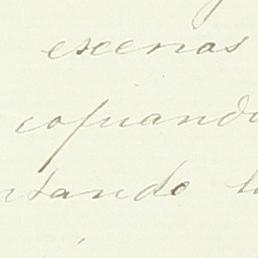 escenas
copiando
ntando l